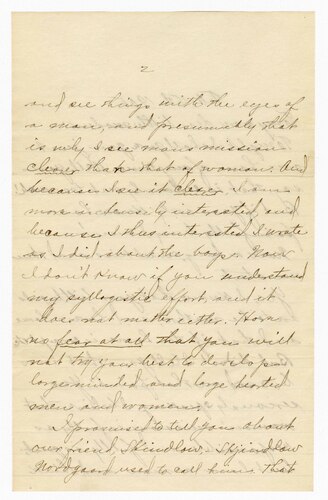 2
and see things with the eyes of
a man, and presumably that
is why I see man's mission
closer than that of woman. And
because I see it closer I am
more intensely interested, and
because I thus interested I wrote
as I did about the boys. Now
I don't know if you understand
my syllogistic effort, and it
does not matter either. Have
no fear at all that you will
not try your best to develope
large minded and large harted
men and women.
I promised to tell you about
our friend, Skindlow.
used to call him that